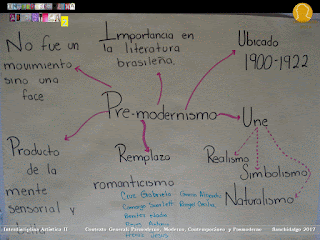 No fue un
movimiento
sino una
face
Importancia en
la literatura
brasileña.
Ubicado
1900-1922
Pre-modernismo
Une
Realismo
Simbolismo
Naturalismo
Producto
de la
mente
sensorial y
Remplazo
romanticismo
Interdisciplina Artística II
Contexto General: Premoderno, Moderno, Contemporáneo y Posmoderno
Bauchidalgo 2017